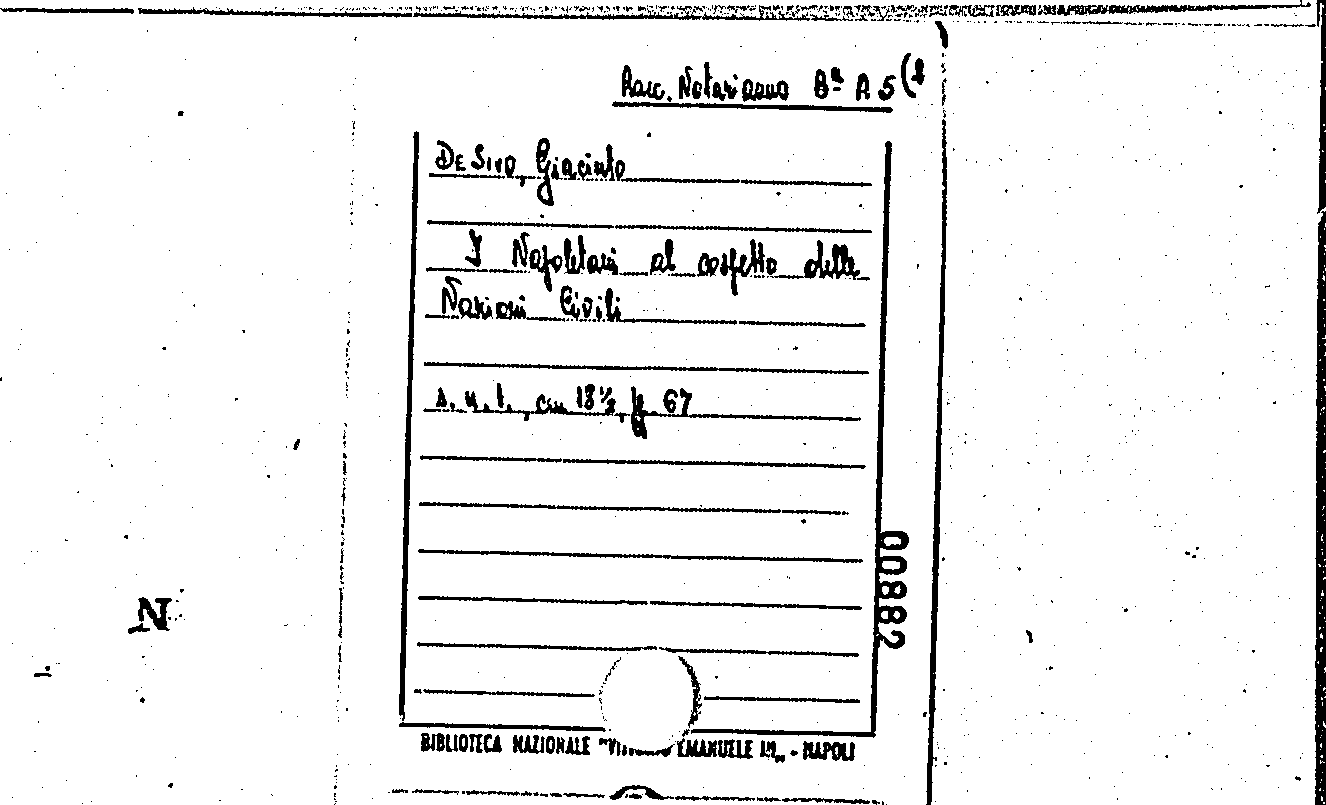 Racc. Notarianno Bª A 5 (2
DE SIVO, Giacinto
I Napoletani al cospetto delle
Nazioni Civili
s. n. t., cm 18½, pp. 67
00882
N
BIBLIOTECA NAZIONALE "VITTORIO EMANUELE III„ - NAPOLI